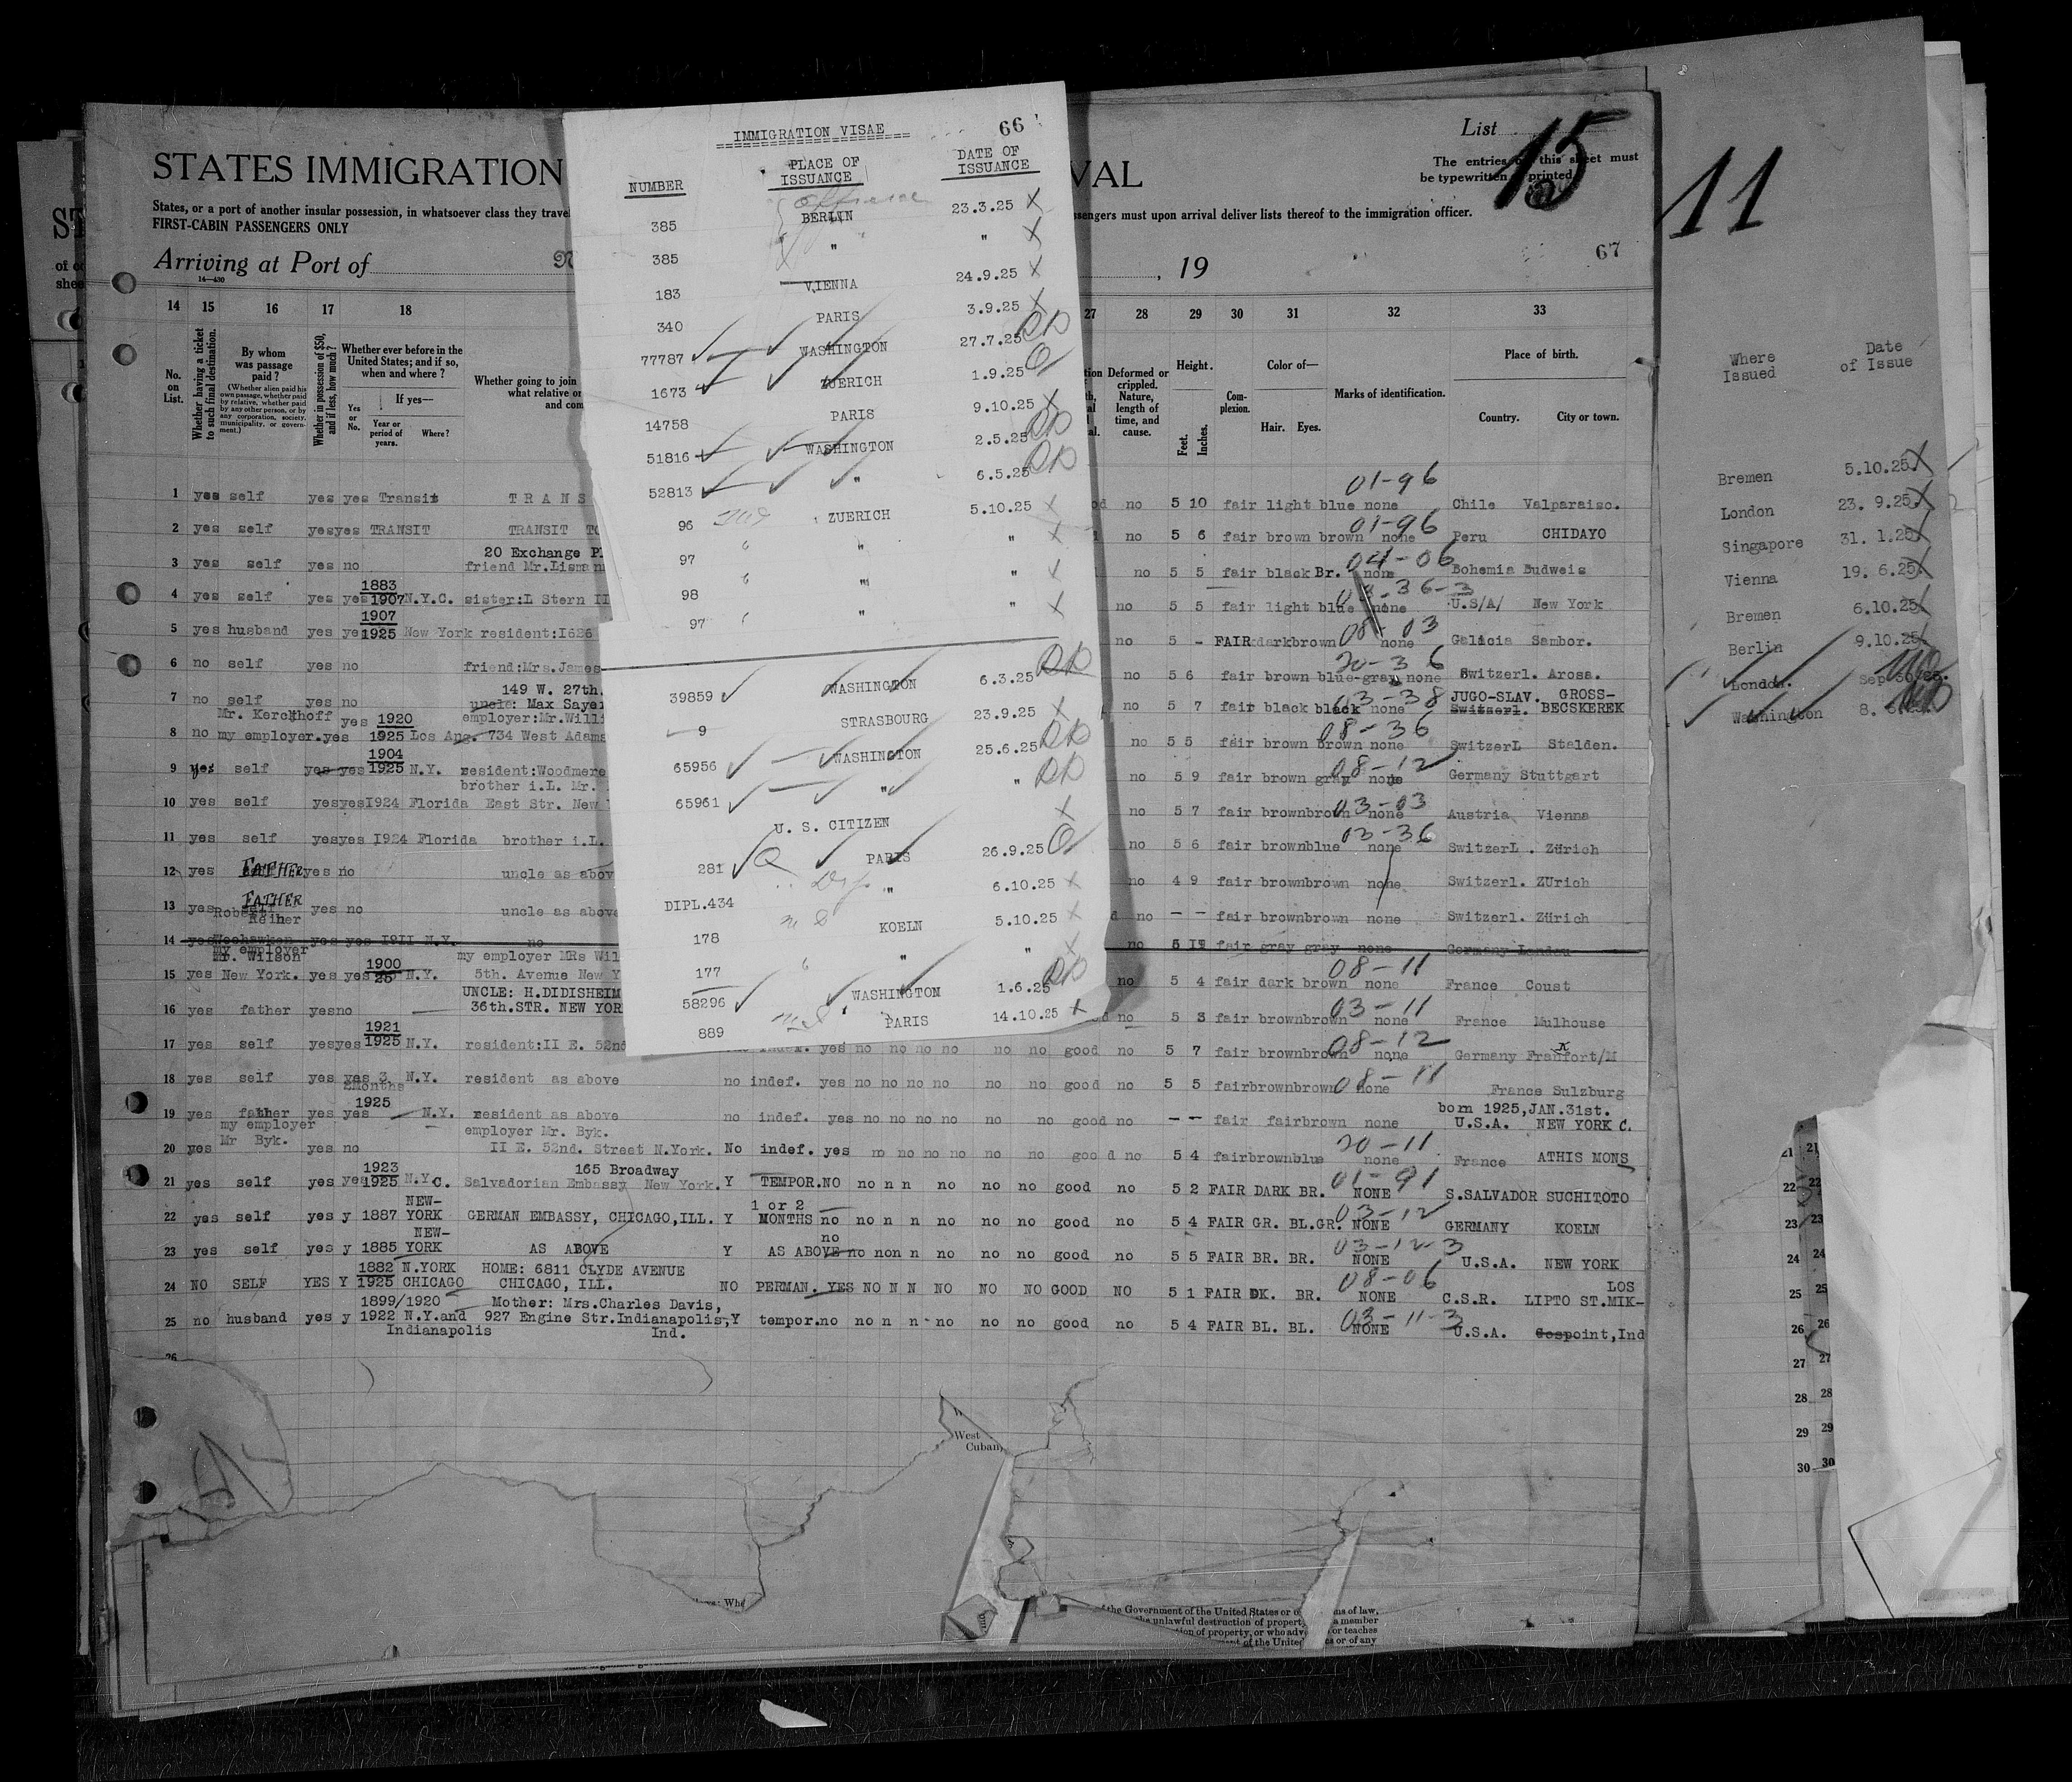 IMMIGRATION VISAE
66
NUMBER PLACE OF ISSUANCE DATE OF ISSUANCE
385 BERLIN 23.3.25 X
385 " " X
183 VIENNA 24.9.25 X
340 PARIS 3.9.25 X
77787 WASHINGTON 27.7.25
1673 ZUERICH 1.9.25
14758 PARIS 9.10.25 X
51816 WASHINGTON 2.5.25
52813 " 6.5.25
96 ZUERICH 5.10.25 X
97 " " X
98 " " X
97 " " X
39859 WASHINGTON 6.3.25
9 STRASBOURG 23.9.25 X
65956 WASHINGTON 25.6.25
65961 " "
U. S. CITIZEN X
281 PARIS 26.9.25
DIPL.434 " 6.10.25 X
178 KOELN 5.10.25 X
177 " " X
58296 WASHINGTON 1.6.25
889 PARIS 14.10.25 X
STATES IMMIGRATION
VAL
List 15
The entries on this sheet must
be typewritten or printed
States, or a port of another insular possession, in whatsoever class they travel
ssengers must upon arrival deliver lists thereof to the immigration officer.
FIRST-CABIN PASSENGERS ONLY
Arriving at Port of
, 19
67
14—430
14 15 16 17 18 27 28 29 30 31 32 33
No. on List.
Whether having a ticket to such final destination.
By whom was passage paid?
(Whether alien paid his own passage, whether paid by relative, whether paid by any other person, or by any corporation, society, municipality, or government.)
Whether in possession of $50, and if less, how much?
Whether ever before in the United States; and if so, when and where?
Yes or No.
If yes—
Year or period of years.
Where?
Whether going to join
what relative or
and com
Deformed or crippled. Nature, length of time, and cause.
Height.
Feet. Inches.
Complexion.
Color of—
Hair. Eyes.
Marks of identification.
Place of birth.
Country. City or town.
1 yes self yes yes Transit T R A N S no 5 10 fair light blue none 01-96 Chile Valparaiso.
2 yes self yes yes TRANSIT TRANSIT no 5 6 fair brown brown none 01-96 Peru CHIDAYO
20 Exchange
3 yes self yes no friend Mr.Lismann no 5 5 fair black Br. none 04-06 Bohemia Budweis
1883
4 yes self yes yes 1907 N.Y.C. sister:L Stern no 5 5 fair light blue none U.S/A/ New York
1907
5 yes husband yes yes 1925 New York resident:I626 no 5 - FAIR dark brown none 08-03 Galicia Sambor.
6 no self yes no friend:Mrs.James no 5 6 fair brown blue-gray none 20-36 Switzerl. Arosa.
149 W. 27th.
7 no self yes no uncle: Max Sayer no 5 7 fair black black none 03-38 JUGO-SLAV. GROSS-
Switzerl. BECSKEREK
Mr. Kerckhoff yes 1920 employer:Mr.Willi
8 no my employer. yes 1925 Los Ang. 734 West Adams no 5 5 fair brown brown none 08-36 Switzerl Stalden.
1904
9 yes self yes yes 1925 N.Y. resident:Woodmere no 5 9 fair brown gray none 08-12 Germany Stuttgart
brother i.L. Mr.
10 yes self yes yes I924 Florida East Str. New no 5 7 fair brown brown none 03-03 Austria Vienna
11 yes self yes yes I924 Florida brother i.L. no 5 6 fair brown blue none 03-36 Switzerl. Zürich
12 yes FATHER yes no uncle as above no 4 9 fair brown brown none Switzerl. ZUrich
13 yes FATHER yes no uncle as above no - - fair brown brown none Switzerl. Zürich
Robert Reiner
14 yes Weehawken yes yes I9II N.Y. no no fair gray gray none Germany Landau
my employer
Mr. Wilson 1900 my employer MRs Wil
15 yes New York. yes yes 25 N.Y. 5th. Avenue New Y no 5 4 fair dark brown none 08-11 France Coust
UNCLE: H.DIDISHEIM
16 yes father yes no 36th.STR. NEW YOR no 5 3 fair brown brown none 03-11 France Mulhouse
1921
17 yes self yes yes 1925 N.Y. resident:II E. 52nd no indef. yes no no no no no no good no 5 7 fair brown brown none 08-12 Germany Frankfort/M
18 yes self yes yes 3 N.Y. resident as above no indef. yes no no no no no no good no 5 5 fair brown brown none 08-11 France Sulzburg
1925 born 1925, JAN.31st.
19 yes father yes yes N.Y. resident as above no indef. yes no no no no no no good no - - fair fair brown none U.S.A. NEW YORK C.
my employer employer Mr. Byk.
20 yes Mr Byk. yes no II E. 52nd. Street N.York. No indef. yes no no no no no no good no 5 4 fair brown blue none 20-11 France ATHIS MONS
1923 165 Broadway
21 yes self yes yes 1925 N.Y.C. Salvadorian Embassy New York. Y TEMPOR. NO no n n no no no good no 5 2 FAIR DARK BR. NONE 01-91 S.SALVADOR SUCHITOTO
NEW- 1 or 2
22 yes self yes y 1887 YORK GERMAN EMBASSY, CHICAGO,ILL. Y MONTHS no no n n no no no good no 5 4 FAIR GR. BL.GR. NONE 03-12 GERMANY KOELN
NEW- no
23 yes self yes y 1885 YORK AS ABOVE Y AS ABOVE no no n n no no no good no 5 5 FAIR BR. BR. NONE 03-12-3 U.S.A. NEW YORK
1882 N.YORK HOME: 6811 CLYDE AVENUE LOS
24 NO SELF YES Y 1925 CHICAGO CHICAGO, ILL. NO PERMAN. YES NO N N NO NO NO GOOD NO 5 1 FAIR DK. BR. NONE 08-06 C.S.R. LIPTO ST.MIK-
1899/1920 Mother: Mrs.Charles Davis,
25 no husband yes y 1922 N.Y.and 927 Engine Str.Indianapolis, Y tempor. no no n n no no no good no 5 4 FAIR BL. BL. NONE 03-11-3 U.S.A. Gospoint,Ind
Indianapolis Ind.
26
West
Cuban,
the Government of the United States or
ms of law,
the unlawful destruction of property
a member
tion of property, or who adv
or teaches
ent of the United
es or of any
11
Where Issued Date of Issue
Bremen 5.10.25 X
London 23. 9.25 X
Singapore 31. 1.25
Vienna 19. 6.25
Bremen 6.10.25
Berlin 9.10.25
London. Sep
Washington 8.
21 21
22 22
23 23
24 24
25 25
26 26
27 27
28 28
29 29
30 30